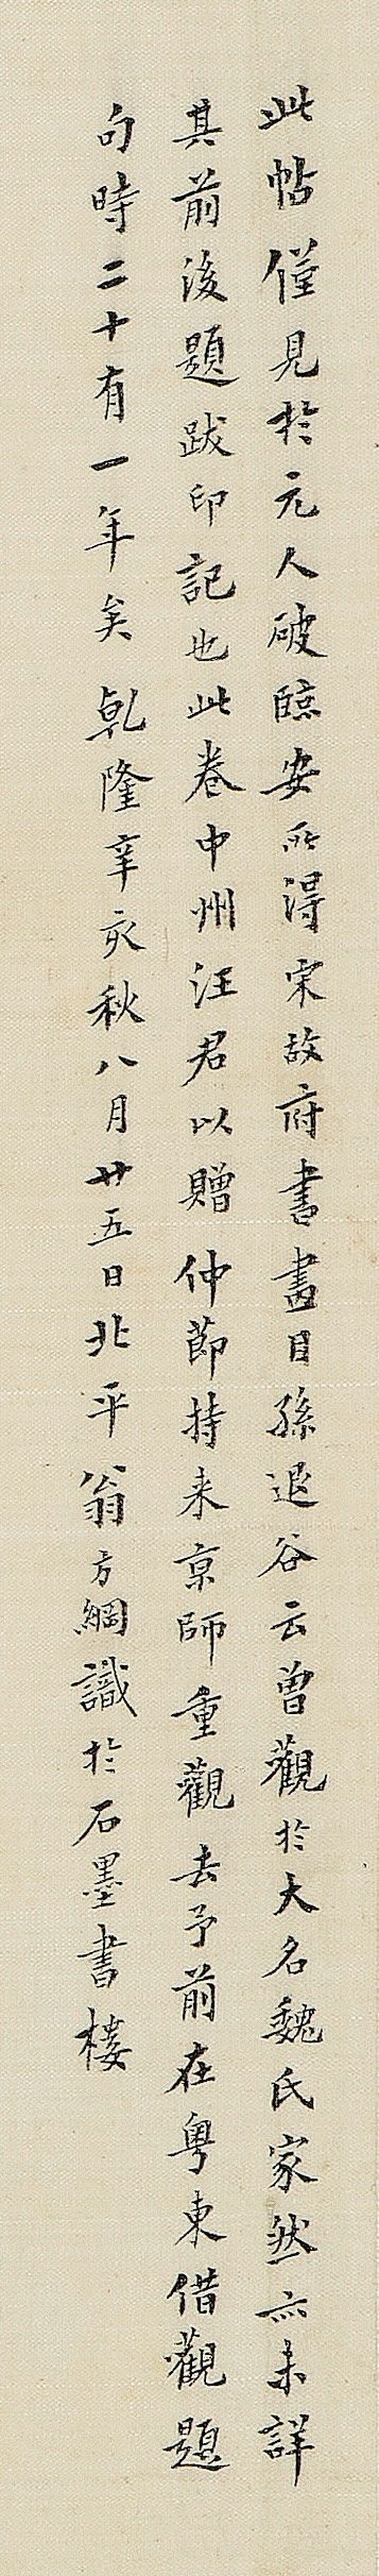 此帖僅見於元人破臨安所得宋故府書畫目孫退谷云曾觀於大名魏氏家然亦未詳
其前後題跋印記也此卷中州汪君以贈仲節持来京師重觀去予前在粤東借觀題
句時二十有一年矣乾隆辛亥秋八月廿五日北平翁方綱識於石墨書樓